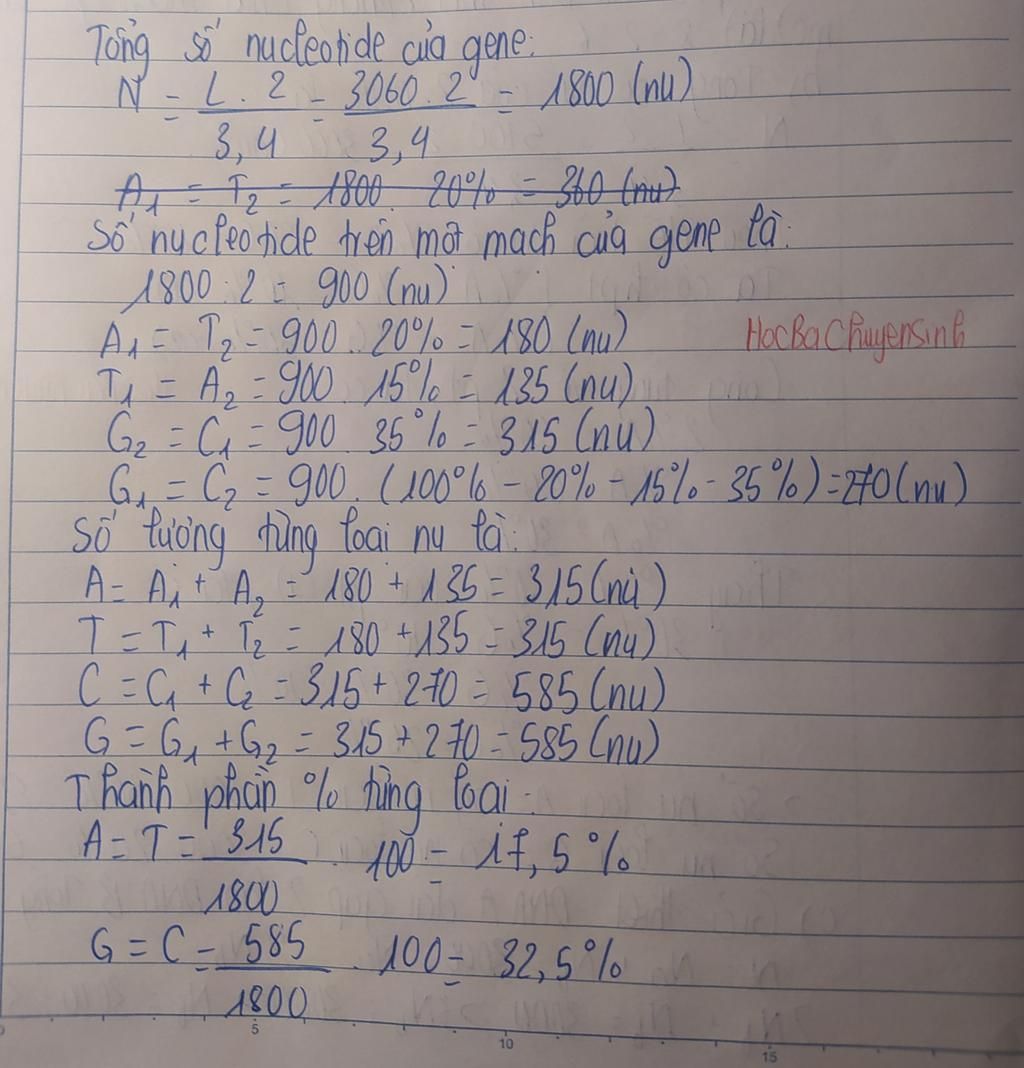 Tổng số nucleotide của gene:
N = L . 2 / 3,4 = 3060 . 2 / 3,4 = 1800 (nu)
A₁ = T₂ = 1800 . 20% = 360 (nu)
Số nucleotide trên một mạch của gene là:
1800 : 2 = 900 (nu)
A₁ = T₂ = 900 . 20% = 180 (nu)
HocBaChuyenSinh
T₁ = A₂ = 900 15% = 135 (nu)
G₂ = C₁ = 900 35% = 315 (nu)
G₁ = C₂ = 900 . (100% - 20% - 15% - 35%) = 270 (nu)
Số lượng từng loại nu là:
A = A₁ + A₂ = 180 + 135 = 315 (nu)
T = T₁ + T₂ = 180 + 135 = 315 (nu)
C = C₁ + C₂ = 315 + 270 = 585 (nu)
G = G₁ + G₂ = 315 + 270 = 585 (nu)
Thành phần % từng loại:
A = T = 315 / 1800 . 100 = 17,5 %
G = C = 585 / 1800 . 100 = 32,5 %
5 10 15